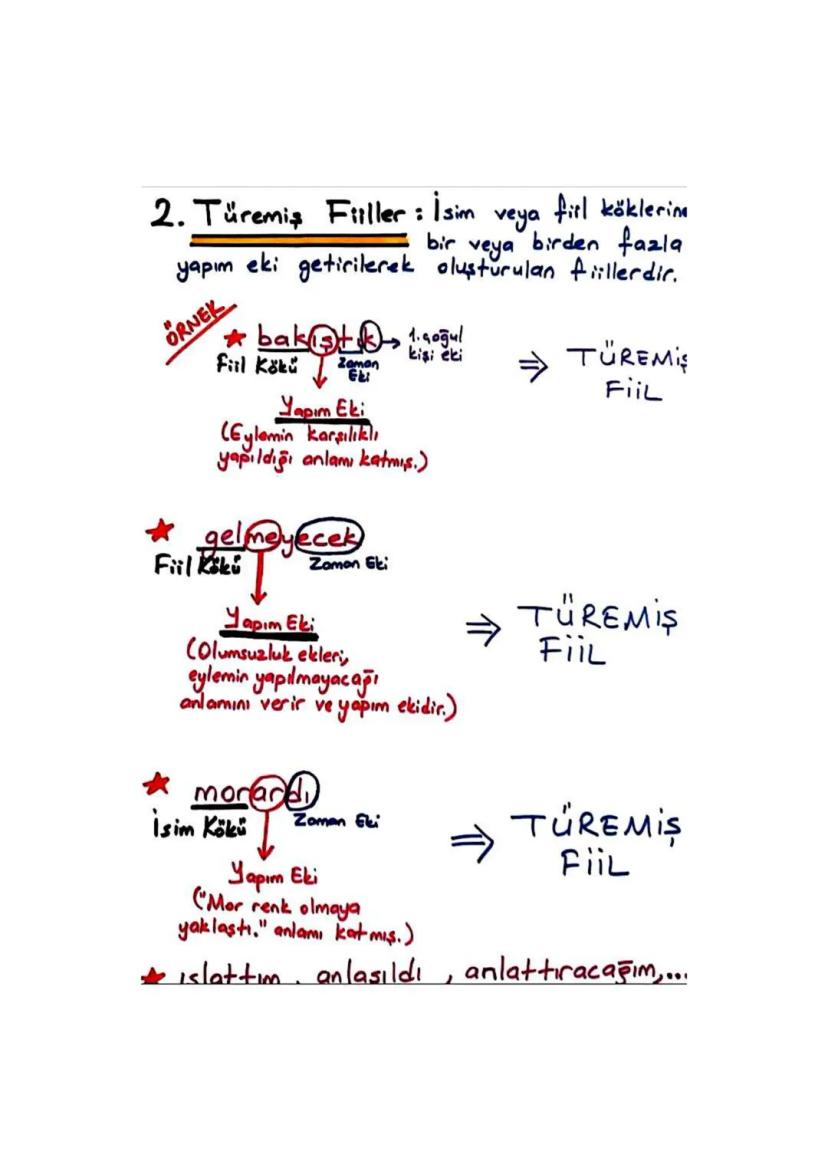 2. Türemiş Fiiller : İsim veya fiil köklerin
bir veya birden fazla
yapım eki getirilerek oluşturulan fiillerdir.
ÖRNEK
★ bakıştık → 1. çoğul
kişi eki
Fiil Kökü
Zaman
Eki
Yapım Eki
(Eylemin karşılıklı
yapıldığı anlamı katmış.)
⇒ TÜREMİŞ
FİİL
★ gelmeyecek
Fiil Kökü
Zaman Eki
Yapım Eki
(Olumsuzluk ekleri,
eylemin yapılmayacağı
anlamını verir ve yapım ekidir.)
⇒ TÜREMİŞ
FİİL
★ morardı
İsim Kökü
Zaman Eki
Yapım Eki
("Mor renk olmaya
yaklaştı." anlamı katmış.)
⇒ TÜREMİŞ
FİİL
★ ıslattım, anlaşıldı, anlattıracağım,...